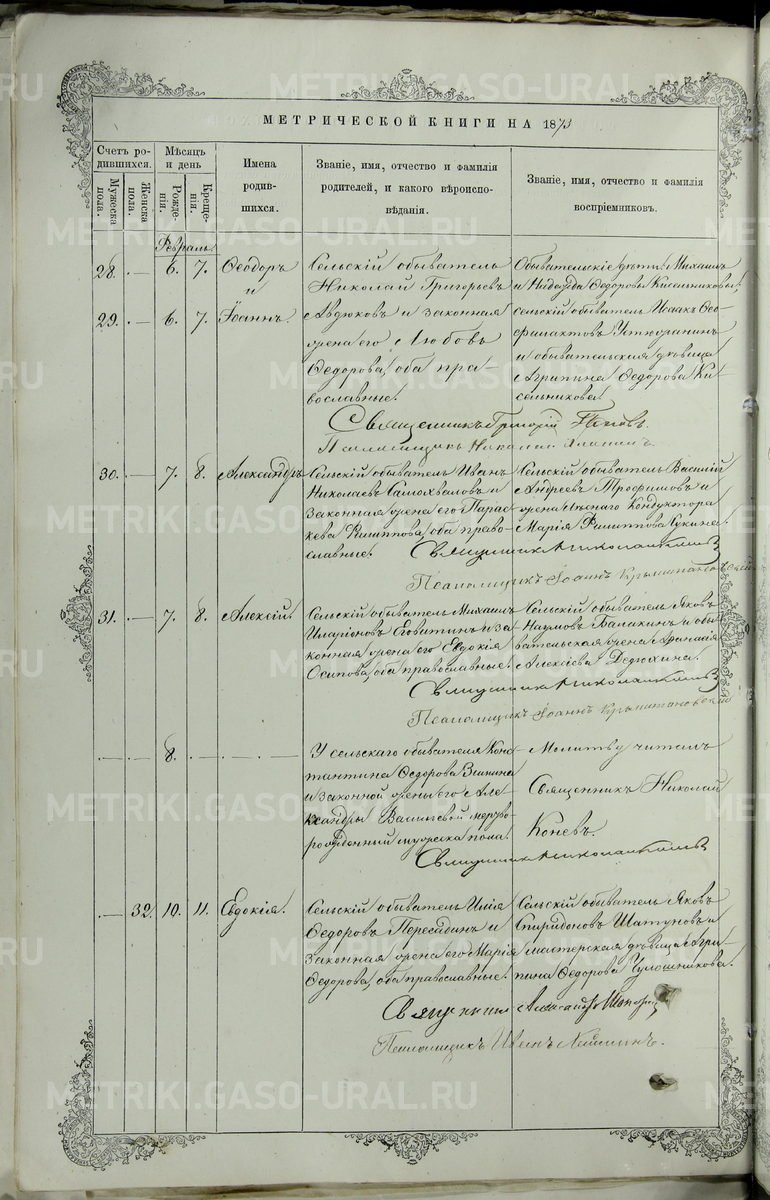 МЕТРИЧЕСКОЙ КНИГИ НА 1873
Счетъ ро-
дившихся.
Мужеска
пола.
Женска
пола.
Мѣсяцъ
и день
Рожде-
нія.
Креще-
нія.
Имена
родив-
шихся.
Званіе, имя, отчество и фамилія
родителей, и какого вѣроиспо-
вѣданія.
Званіе, имя, отчество и фамилія
воспріемниковъ.
Февраль.
28. 6. 7. Ѳеодоръ
и
Сельскій обыватель
Николай Григорьевъ
Обывательскіе дѣти: Михаилъ
и Надежда Ѳедоровы Кисельниковы.
29. 6. 7. Іоаннъ.
Авдюковъ и законная
жена его Любовь
Ѳедорова, оба пра-
вославные.
сельскій обыватель Исаакъ Ѳео-
филактовъ Устюжанинъ
и обывательская дѣвица
Агрипина Ѳедорова Ки-
сельникова.
Священникъ Григорій Поповъ.
Псаломщикъ Николай
30. 7. 8. Александръ
Сельскій обыватель Иванъ
Николаевъ Самохваловъ и
законная жена его Парас-
кева Филиппова, оба право-
славные.
Сельскій обыватель Василій
Андреевъ Трофимовъ и
жена Кондуктора
Марія Филиппова Кукина.
Священникъ Николай Коневъ
Псаломщикъ Іоаннъ
31. 7. 8. Алексій.
Сельскій обыватель Михаилъ
Иларіоновъ и за-
конная жена его Евдокія
Осипова, оба православные.
Сельскій обыватель Яковъ
Наумовъ Балакинъ и обы-
вательская жена Афанасія
Алексѣева Дерюхина.
Священникъ Николай Коневъ
Псаломщикъ Іоаннъ
8.
У сельскаго обывателя Конс-
тантина Ѳедорова Зыкина
и законной жены его Але-
ксандры Васильевой мертво-
рожденный мужеска пола.
Молитву читалъ
Священникъ Николай
Коневъ.
Священникъ Николай Коневъ
32. 10. 11. Евдокія.
Сельскій обыватель Илія
Ѳедоровъ Пересадинъ и
законная жена его Марія
Ѳедорова, оба православные.
Сельскій обыватель Яковъ
Спиридоновъ Шатуновъ и
мастерская дѣвица Агри-
пина Ѳедорова Чулошникова.
Священникъ Александръ
Псаломщикъ Иванъ
METRIKI.GASO-URAL.RU